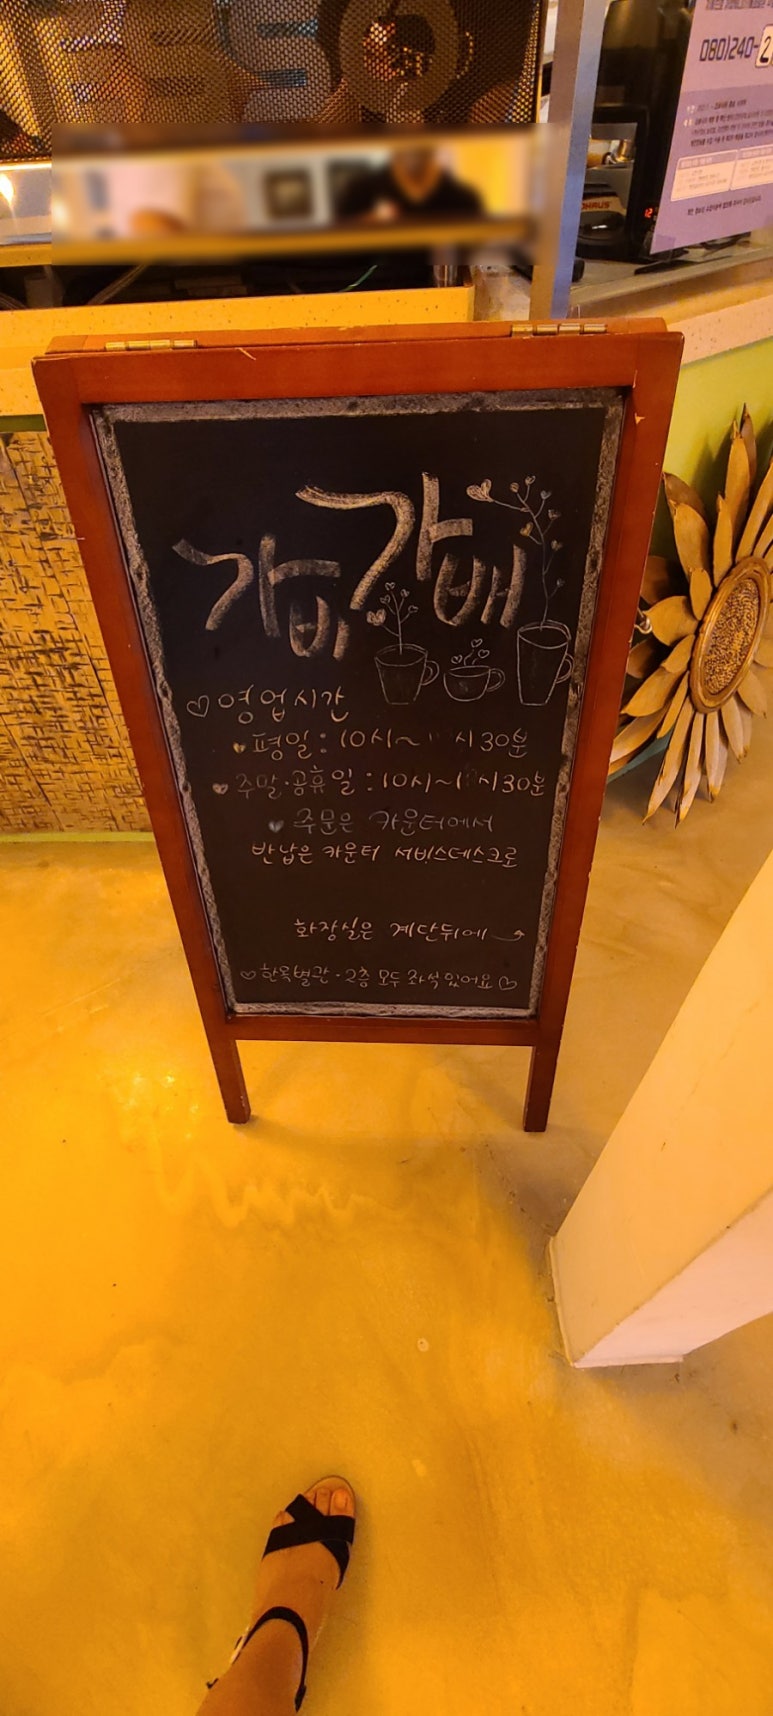 080)240-2
OHAUS
가비 가배
영업시간
평일 : 10시~ 시30분
주말·공휴일 : 10시~1 시30분
주문은 카운터에서
반납은 카운터 서비스데스크로
화장실은 계단뒤에
한옥별관·2층 모두 좌석있어요